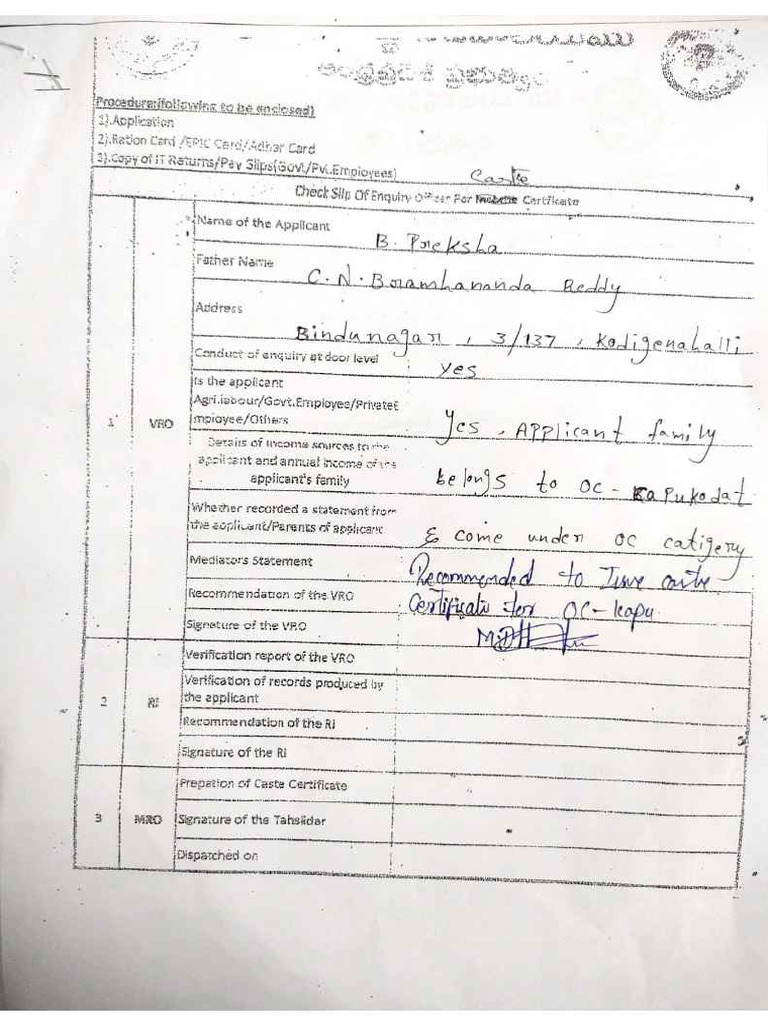 ఆంధ్రప్రదేశ్ ప్రభుత్వం
Procedure:(following to be enclosed)
1).Application
2).Ration Card /EPIC Card/Adhar Card
3).Copy of IT Returns/Pay Slips(Govt/Pvt.Employees)
Caste
Check Slip Of Enquiry Officer For Income Certficate
Name of the Applicant
B. Preksha
Father Name
C.N. Bramhananda Reddy
Address
Bindunagar, 3/137, Kodigenahalli
Conduct of enquiry at door level
yes
1 VRO
Is the applicant
Agri.labour/Govt.Employee/PrivateE
mployee/Others
Yes, Applicant family
Details of Income sources to the
applicant and annual income of the
applicant's family
belongs to OC- Kapukodat
Whether recorded a statement from
the applicant/Parents of applicant
& come under OC catigery
Mediators Statement
Recommended to
Recommendation of the VRO
Certificate for OC-kapu
Signature of the VRO
2 RI
Verification report of the VRO
Verification of records produced by
the applicant
Recommendation of the RI
Signature of the RI
3 MRO
Prepation of Caste Certificate
Signature of the Tahsildar
Dispatched on